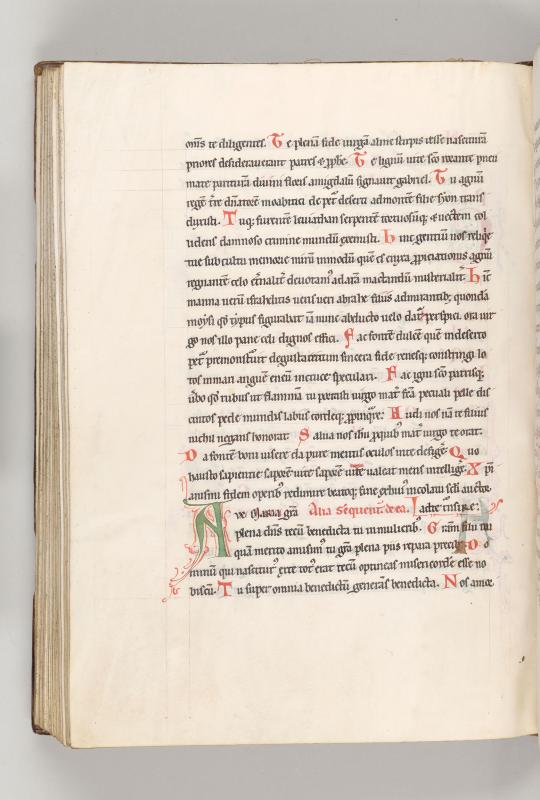 om̅s te diligentes. Te plenā fide uirgā alme stirpis iesse nascitura
priores desiderauerant patres & ꝓphe. Te lignū uite sc̄o
mate parituram diuini floris amigdalū signauit gabriel. Tu agnū
regē t̅re dn̄atorē moabitici de pet̅ deserti ad montē filie syon trans
duxisti. Tuq; furentē leuiathan serpentē tortuosūq; & uectem col
lidens damnoso crimine mundū exemisti. Hinc gentiū nos reliqe
tue sub cultu memorie mirū inmodū quē es enixa ꝓpiciationis agnū
regnantē celo et̅nalit̅ deuocam᷒ ad arā mactandū misterialit̅. Hic
manna uerū israhelitis ueris ueri abrahe filiis admirantib; quondā
moysi qd̅ typus figurabat iā nunc abducto uelo dat᷒ perspici. ora uir
go nos illo pane celi dignos effici. Fac fontē dulcē quē in deserto
pet̅ premonstrauit degustare cum sincera fide renesq; constringi lo
tos in mari anguē eneū in cruce speculari. Fac igni sc̄o patrisq;
ūbo qd̅ rubus ut flammā tu portasti uirgo mat̅ f̅cā pecuali pelle dis
cinctos pede mundis labiis cordeq; ꝓpinq̅re. Audi nos nā te filius
nichil negans honorat. Salua nos ih̅u ꝓ quib; mat̅ uirgo te orat.
Da fontē boni uisere da pure mentis oculos in te defige̅. Quo
hausto sapientie saporē uite sapore uite ualeat mens intellige̅. Xpi
anismi fidem operib; redimire beatoq; fine
Aue Maria gr̄a Alia sequentia de ea.
plena dn̄s tecū benedicta tu in mulierib;. Gr̄am filii tui
quā merito amisim᷒ tu gr̄a plena piis repara precib; Do
minū qui nascitur᷒ ex te tot᷒ erat tecū optineas misericorde esse no
biscū. Tu super omnia benedictū generans benedicta. Nos amore